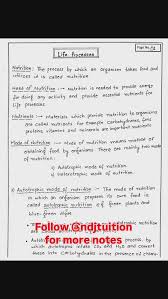 Page No. 1
Life Processes
Nutrition: The process by which an organism takes food and
utilizes it is called nutrition
Need of Nutrition :→ nutrition is needed to provide energy
for doing any activity and provide essential nutrients for
life processes
Nutrients → Materials which provide nutrition to organisms
are called nutrients for example carbohydrates,
proteins, vitamins and minerals are important nutrients
Mode of Nutrition → means methods of
obtaining food by an organisms. There are mainly two mode
of nutrition.
i) Autotrophic mode of nutrition
ii) Heterotrophic mode of nutrition.
i) Autotrophic mode of nutrition → The mode of nutrition
in which an organism prepare its food is called
autotrophic nutrition of green plants and
blue-green algae
Follow @ndjtuition
for more notes
by which
autotrophs take CO₂ and H₂O and convert
these into Carbohydrates in the presence of